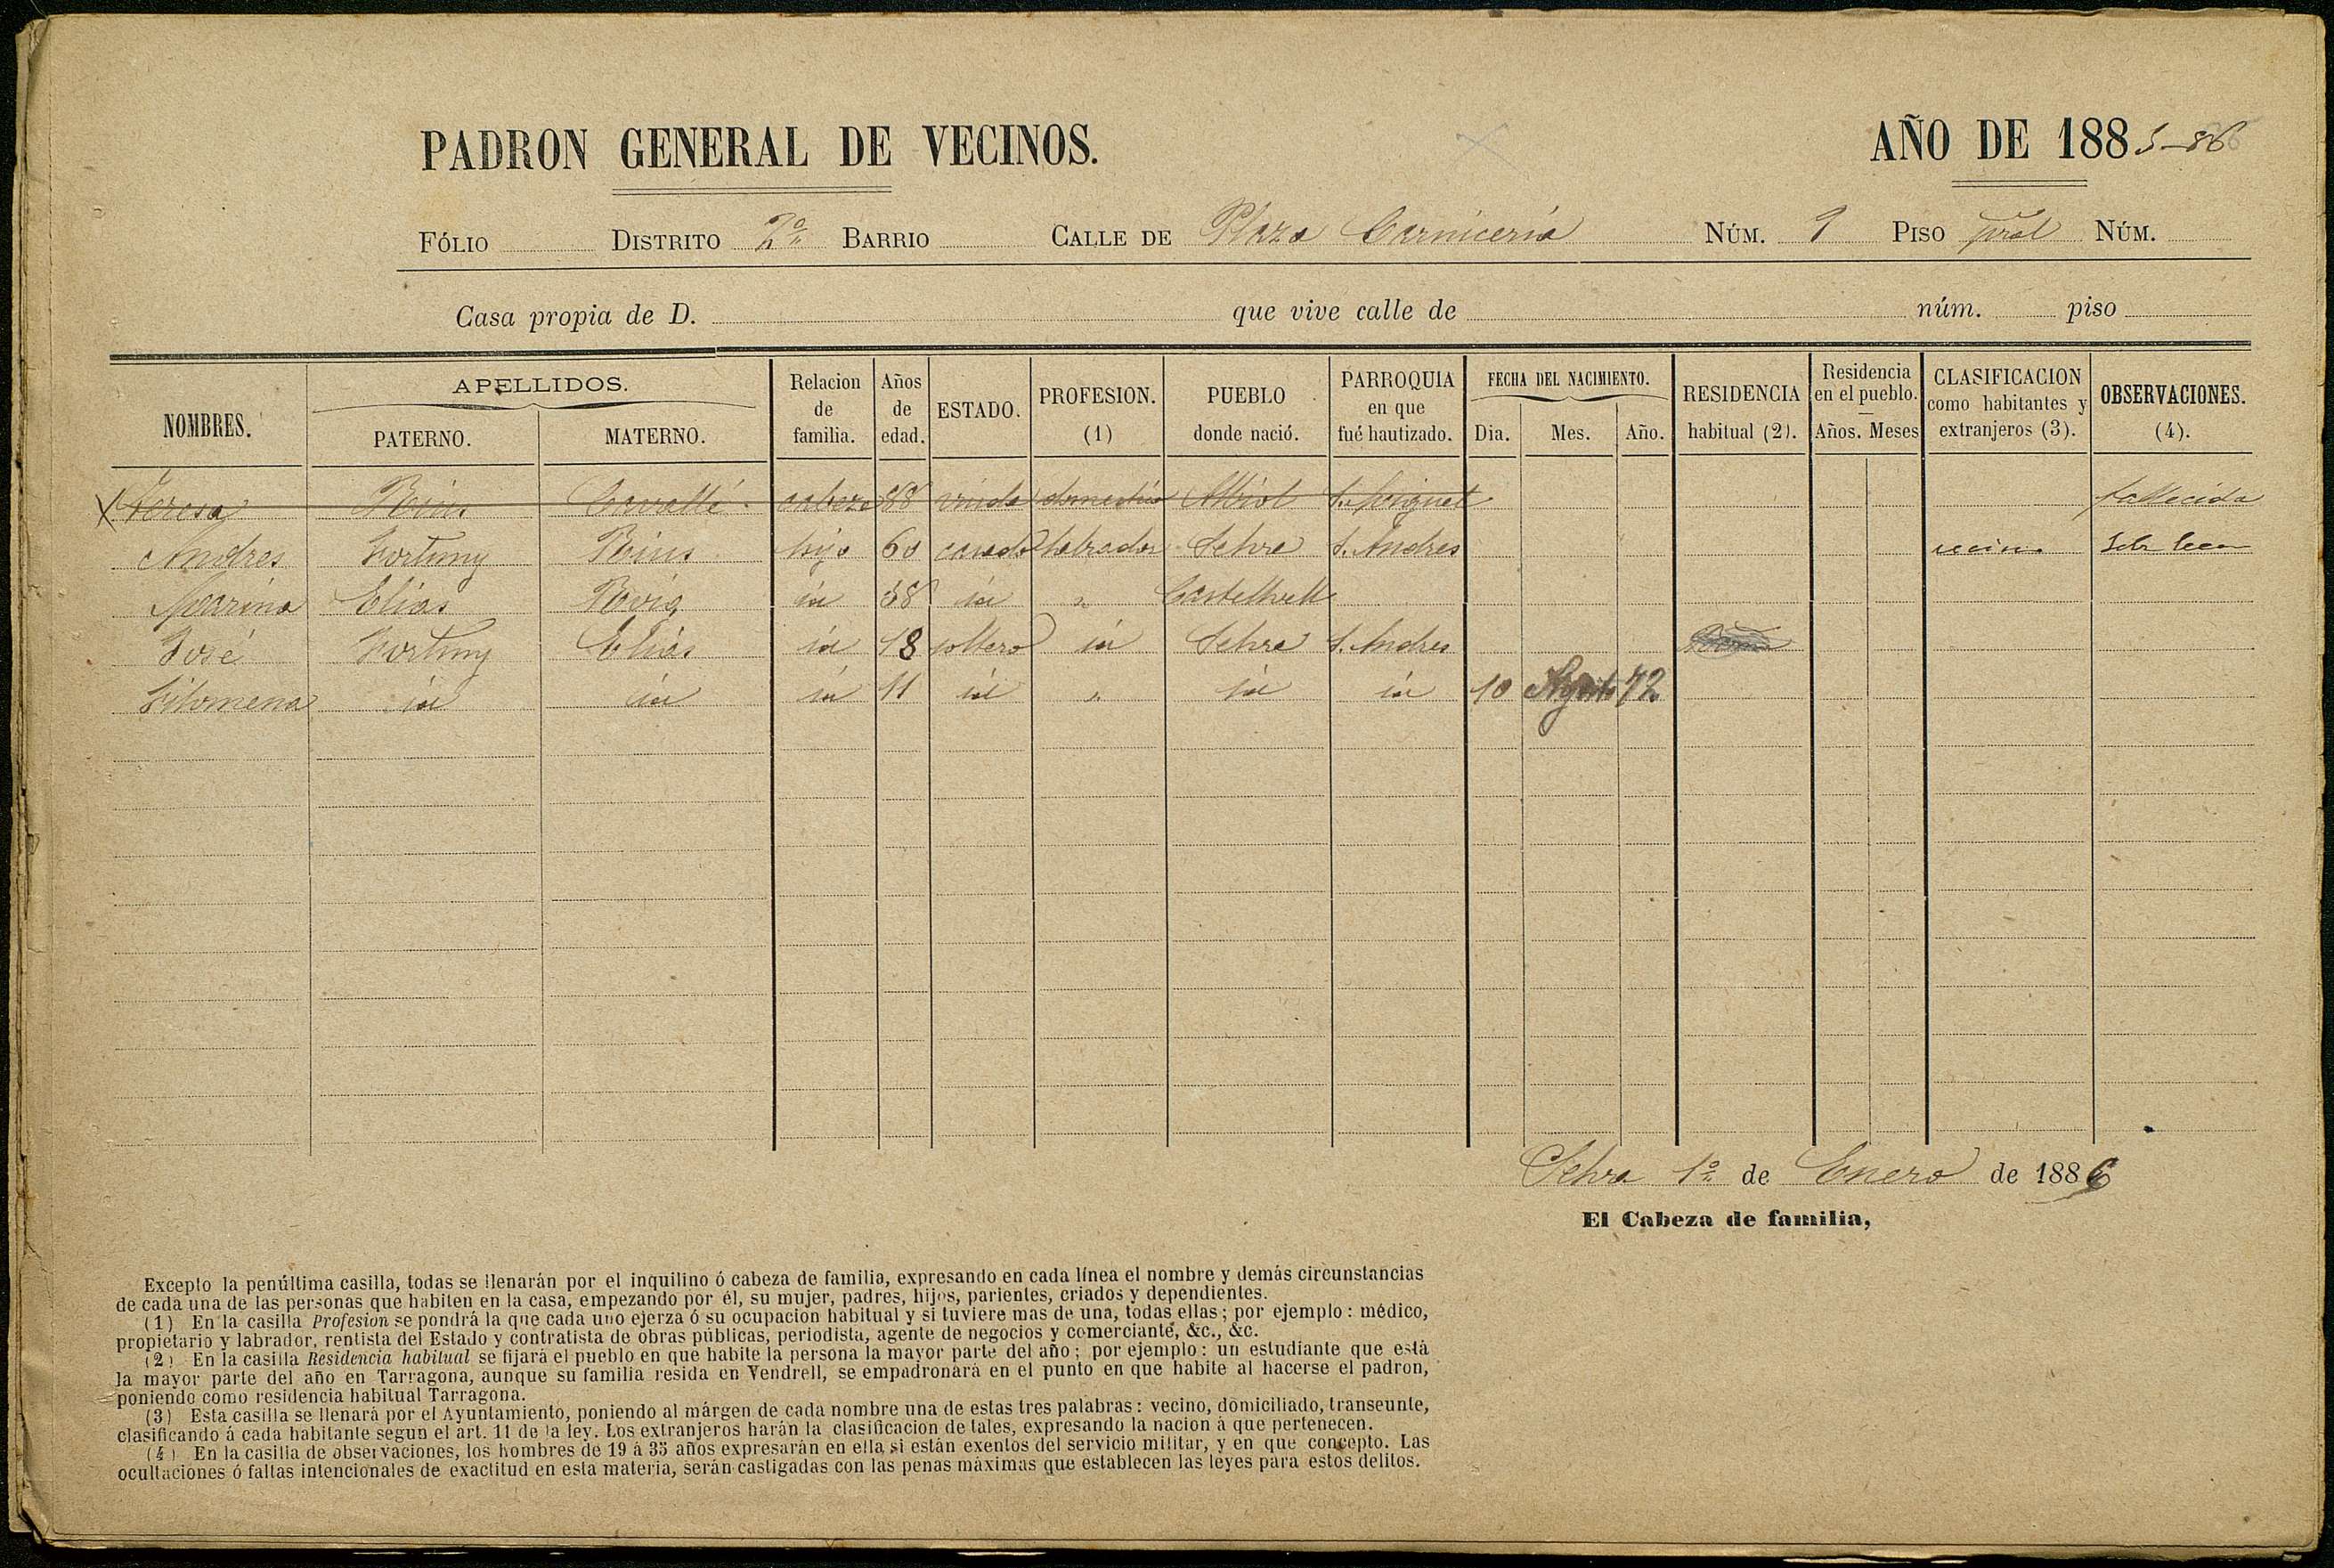 PADRON GENERAL DE VECINOS. AÑO DE 1885-86
FÓLIO DISTRITO 2º BARRIO CALLE DE Plaza Carnicería NÚM. 9 PISO pral NÚM.
Casa propia de D. que vive calle de núm. piso
NOMBRES. APELLIDOS. PATERNO. MATERNO. Relacion de familia. Años de edad. ESTADO. PROFESION. (1) PUEBLO donde nació. PARROQUIA en que fué bautizado. FECHA DEL NACIMIENTO. Dia. Mes. Año. RESIDENCIA habitual (2). Residencia en el pueblo. Años. Meses CLASIFICACION como habitantes y extranjeros (3). OBSERVACIONES. (4).
X Teresa Peius Cavallé cabeza 88 viuda domestica Albiol S. Miguel fallecida
Andres Fortuny Peius hijo 60 casado labrador Selva S. Andres vecino Sabe leer
Marina Elias Roig id 58 id " Castellvell
José Fortuny Elias id 18 soltero id Selva S. Andres
Filomena id id id 11 id " id id 10 Agosto 72
Selva 1º de Enero de 1886
El Cabeza de familia,
Excepto la penúltima casilla, todas se llenarán por el inquilino ó cabeza de familia, expresando en cada línea el nombre y demás circunstancias
de cada una de las personas que habiten en la casa, empezando por él, su mujer, padres, hijos, parientes, criados y dependientes.
(1) En la casilla Profesion se pondrá la que cada uno ejerza ó su ocupacion habitual y si tuviere mas de una, todas ellas; por ejemplo: médico,
propietario y labrador, rentista del Estado y contratista de obras públicas, periodista, agente de negocios y comerciante, &c., &c.
(2) En la casilla Residencia habitual se fijará el pueblo en que habite la persona la mayor parte del año; por ejemplo: un estudiante que está
la mayor parte del año en Tarragona, aunque su familia resida en Vendrell, se empadronará en el punto en que habite al hacerse el padron,
poniendo como residencia habitual Tarragona.
(3) Esta casilla se llenará por el Ayuntamiento, poniendo al márgen de cada nombre una de estas tres palabras: vecino, domiciliado, transeunte,
clasificando á cada habitante segun el art. 11 de la ley. Los extranjeros harán la clasificacion de tales, expresando la nacion á que pertenecen.
(4) En la casilla de observaciones, los hombres de 19 á 35 años expresarán en ella si están exentos del servicio militar, y en que concepto. Las
ocultaciones ó faltas intencionales de exactitud en esta materia, serán castigadas con las penas máximas que establecen las leyes para estos delitos.